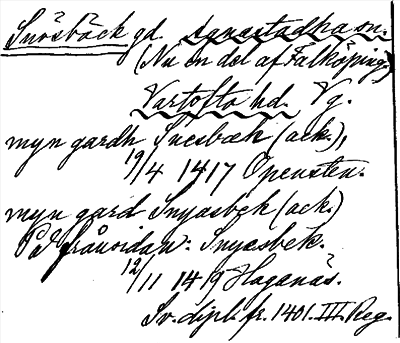 Snösbäck gd. Agnestadha sn.
(Nu en del af Falköping)
Vartofta hd. Vg.
myn gardh Snesbæk (ack.),
19/4 1417 Opensten.
myn gard Snyasbek (ack.)
På frånsidan: Snyasbek.
12/11 1419 Haganäs.
Sv. dipl. fr. 1401. III. Reg.